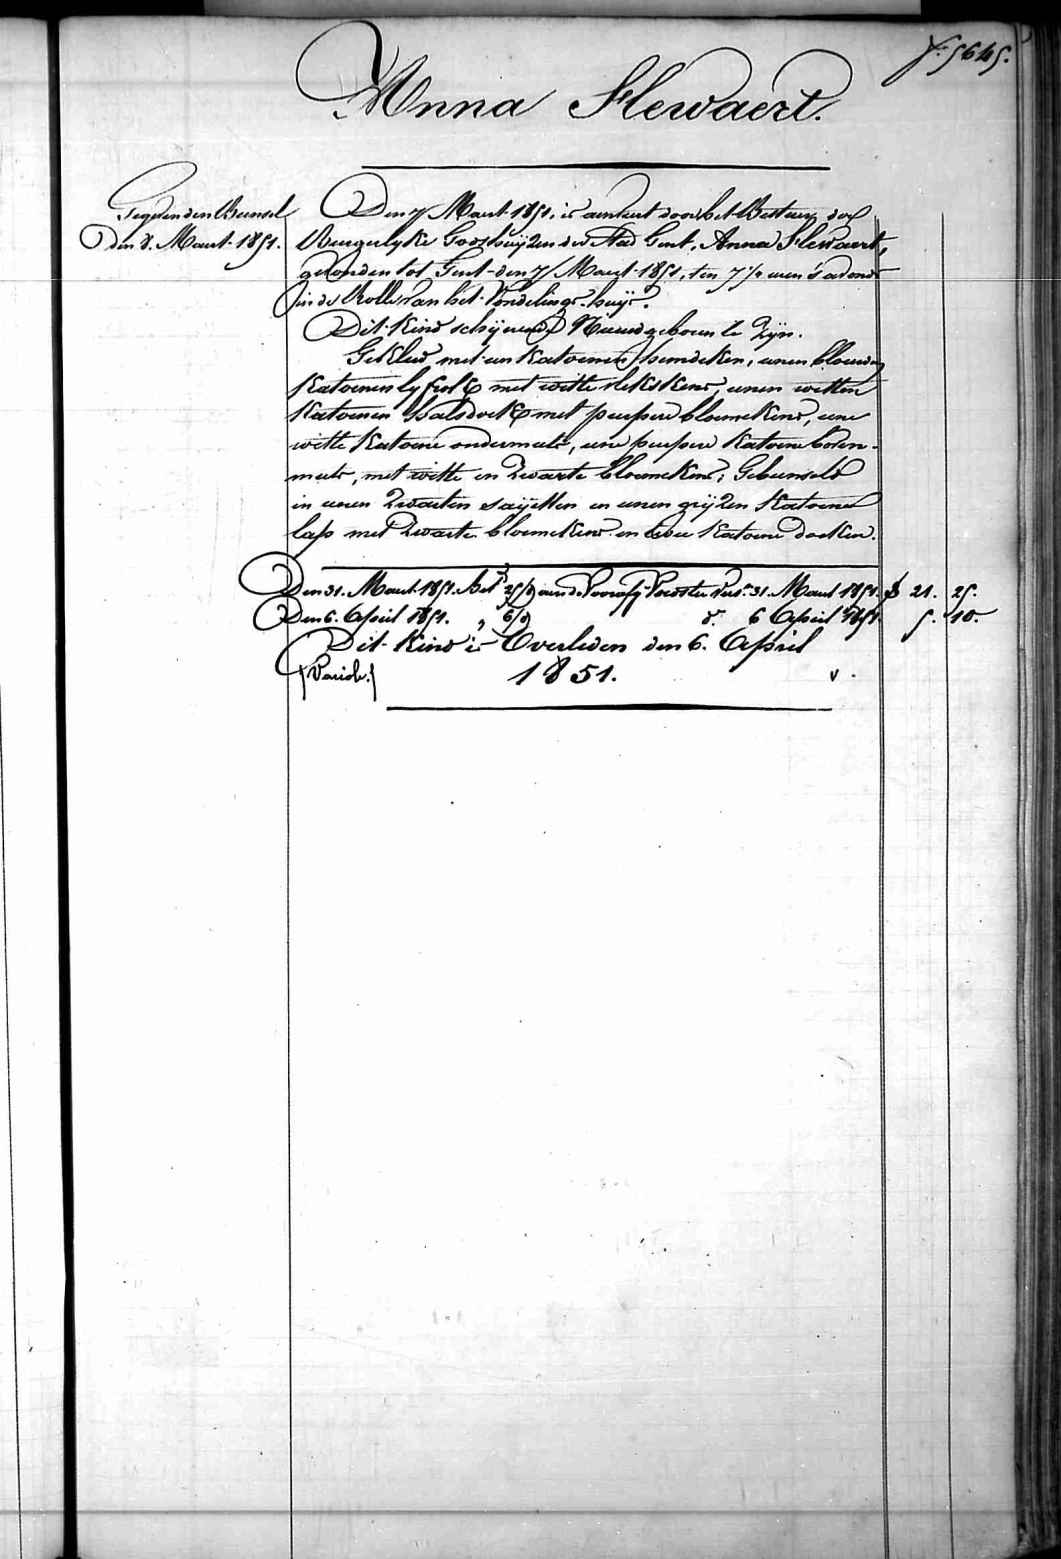 f.º 5645.
Anna Slewaert.
Tegen den Bunsel
den 8. Maart 1851.
Den 7 Maart 1851, is aenveert door het Bestuer der
Burgerlyke Godshuijzen der Stad Gent, Anna Slewaert,
gevonden tot Gent den 7 Maart 1851, ten 7 ½ uren 's avonds
in de Rolle van het Vondelings-huijs.
Dit Kind schijnende Nieuwgeboren te Zijn.
Gekleed met een Katoenen hemdeken, eenen blauwen
Katoenen lyfrok met witte stekskens, eenen witten
Katoenen halsdoek met purpere bloemekens, eene
witte Katoene ondermuts, eene purpere Katoene boven-
muts, met witte en Zwarte bloemekens; Gebunseld
in eenen Zwarten saijetten en eenen grijzen Katoenen
lap met Zwarte bloemekens en twee Katoene doeken.
Den 31. Maart 1851. bet. 25/ aen de Voorzg. Voedster vers. 31. Maart 1851. 21. 25.
Den 6. April 1851. " 6/ d.º 6 April 1851 5. 10.
Dit Kind is Overleden den 6. April
1851.